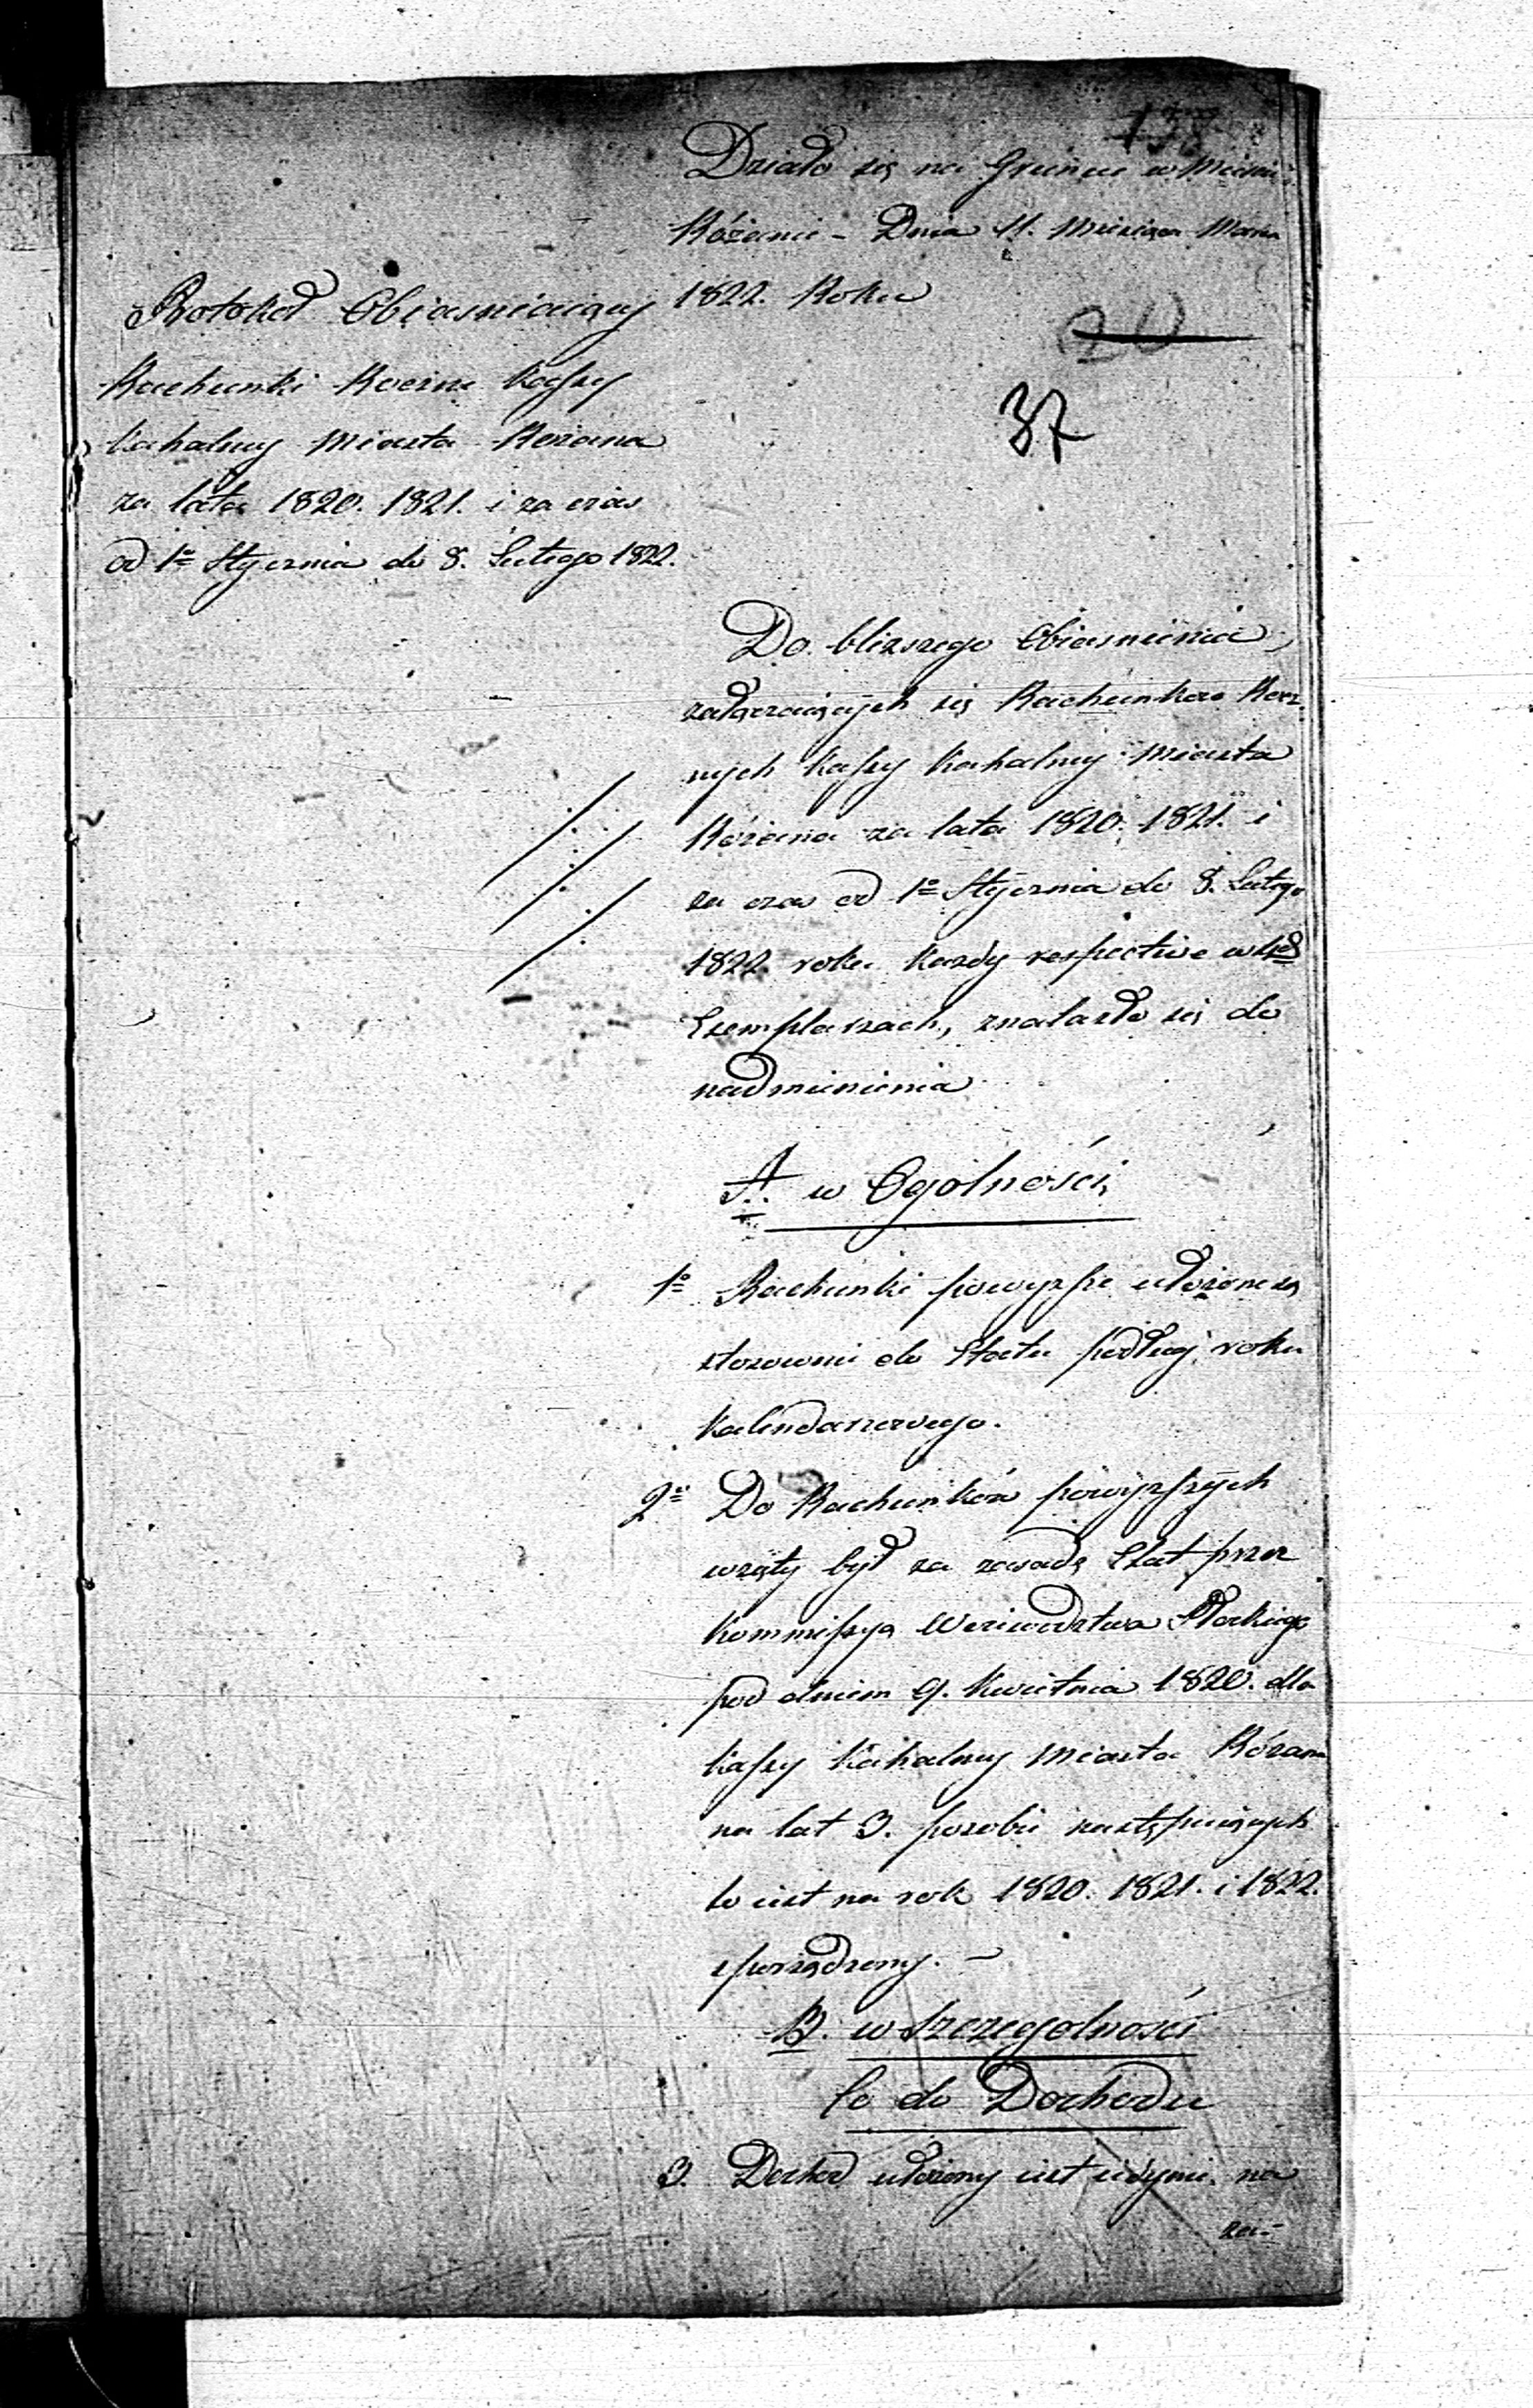 138
Działo się na Gruncie w Mieście
Różanie - Dnia 11. Miesiąca Marca
1822. Roku
20
37
Protokół Obiasniaiący
Rachunki Roczne Kassy
Kahalney Miasta Rożana
za lata 1820. 1821. i za czas
od 1º Stycznia do 8. Lutego 1822.
Do bliższego Obiasnienia
załączaiących się Rachunkow Rocz
nych Kassy Kahalney Miasta
Różana za lata 1820. 1821. i
za czas od 1º Stycznia do 8. Lutego
1822 roku każdy respective w
Exemplarzach, znalazło się do
nadmienienia
A. w Ogólności
1º Rachunki powyższe ułożone są
stosownie do Etatu podług roku
Kalendarzowego.
2º Do Rachunków powyższych
wzięty był za zasadę Etat przez
Kommissyą Woiewodztwa Płockiego
pod dniem 9. Kwietnia 1820. dla
Kassy Kahalney Miasta Różana
na lat 3. posobie następuiących
to iest na rok 1820. 1821. i 1822.
sporządzony. -
B. w Szczegolności
Co do Dochodu
3. Dochod ułożony iest iedynie na
za-